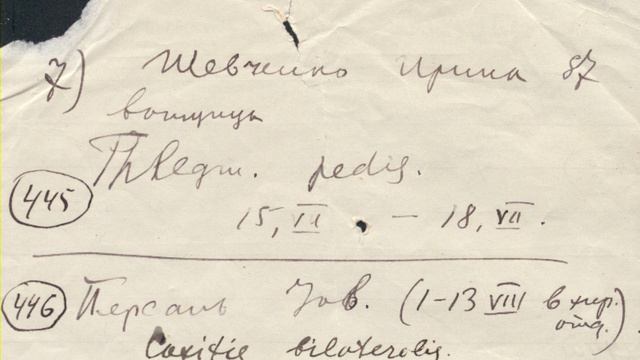 7) Шевченко Ирина 87
Phlegm. pedis.
445
15, VII – 18, VII.
446 Персань Зов. (1-13 VIII в хир. отд.)
Coxitis bilateralis.